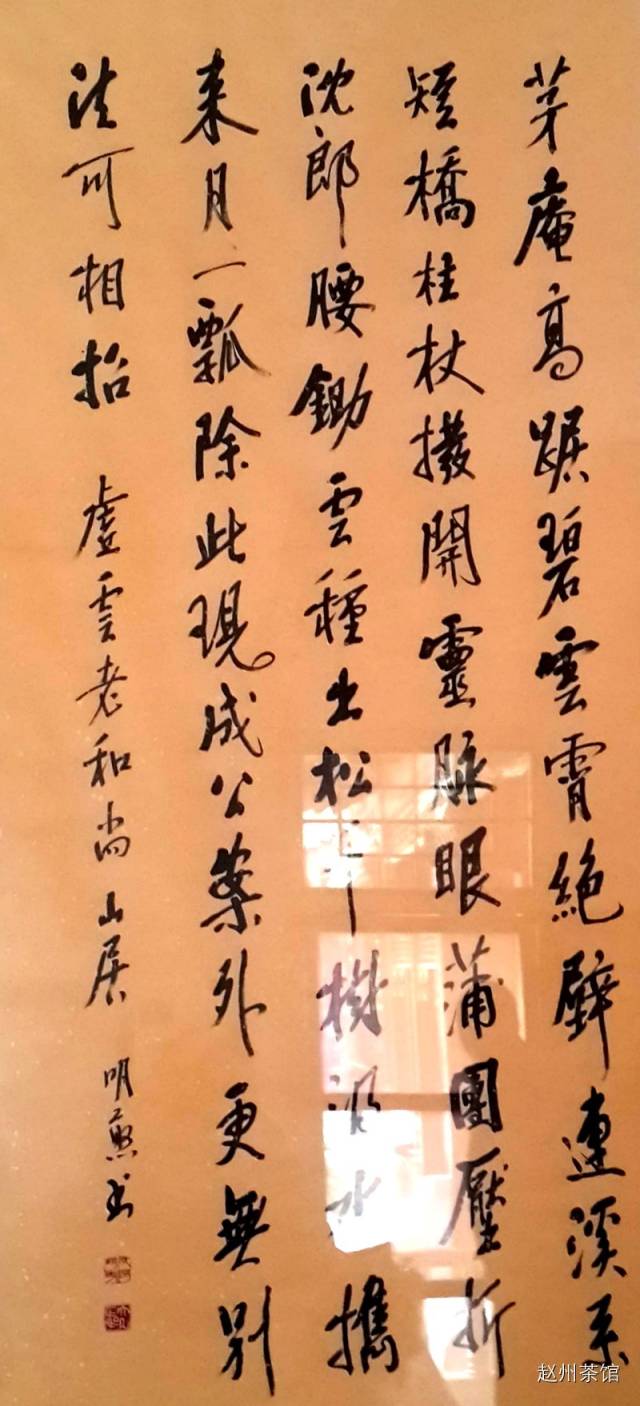 茅庵高踞碧雲霄絶壁連溪系
短橋柱杖撥開靈脉眼蒲團壓折
沈郎腰鋤雲種出松千樹汲水攜
来月一瓢除此現成公案外更無别
法可相招 虚雲老和尚山居 明憨书
赵州茶馆